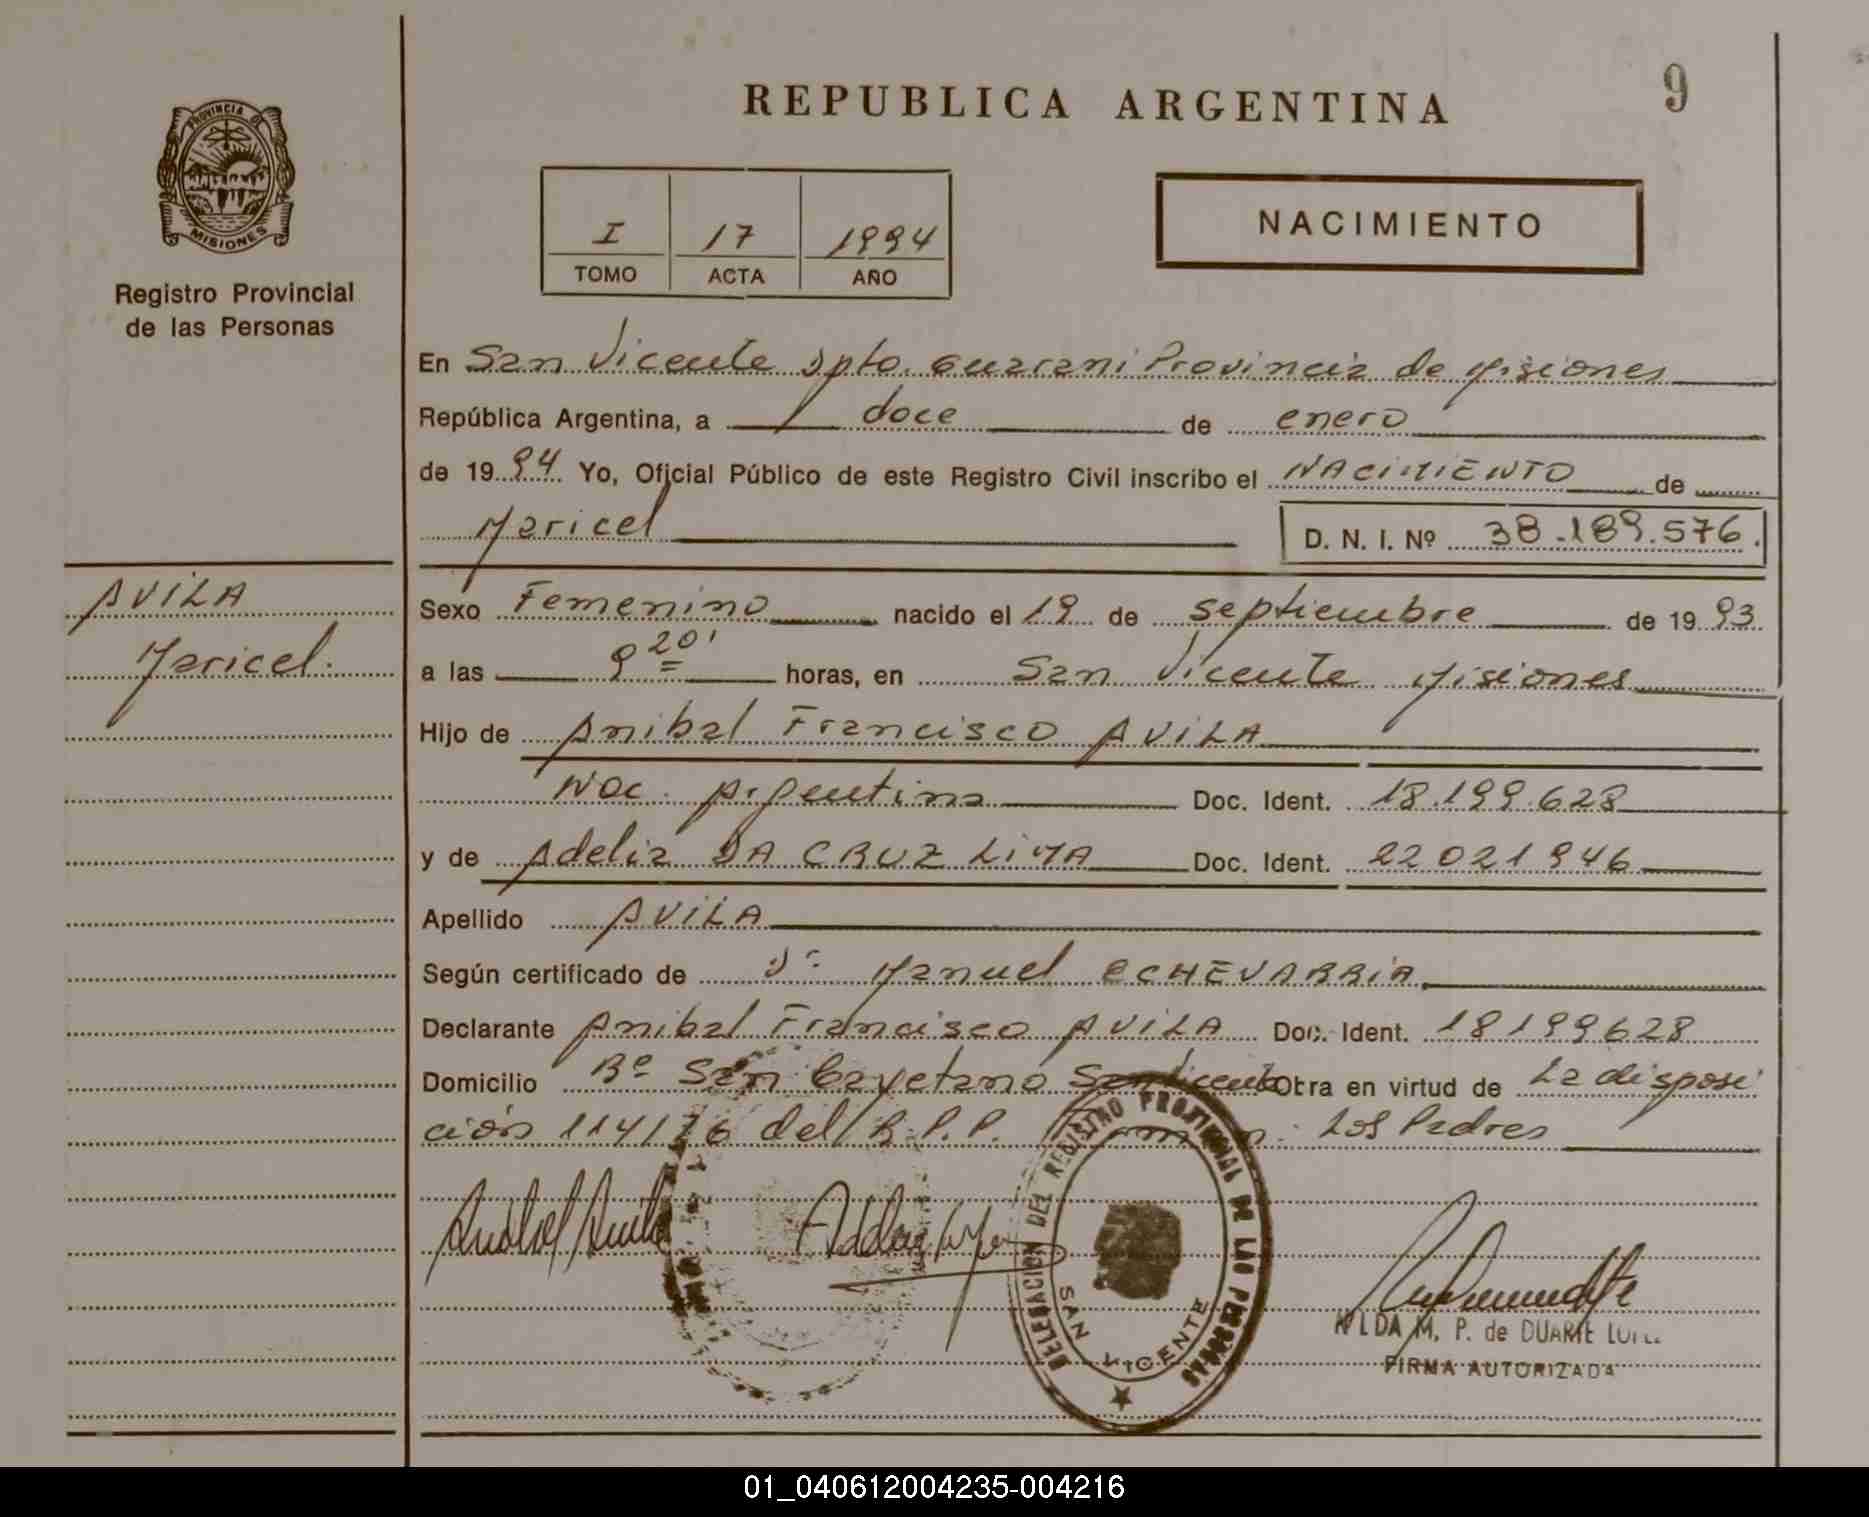 REPUBLICA ARGENTINA
9
PROVINCIA DE
MISIONES
Registro Provincial
de las Personas
I 17 1994
TOMO ACTA AÑO
NACIMIENTO
En San Vicente Dpto. Guarani Provincia de Misiones
República Argentina, a doce de enero
de 1994 Yo, Oficial Público de este Registro Civil inscribo el NACIMIENTO de
Maricel
D. N. I. Nº 38.189.576.
AVILA
Maricel.
Sexo Femenino nacido el 19 de septiembre de 1993
a las 9 20' horas, en San Vicente Misiones
Hijo de Anibal Francisco AVILA
Nac. Argentina Doc. Ident. 18.199.628
y de Adelia DA CRUZ LIMA Doc. Ident. 22021946
Apellido AVILA
Según certificado de Dr. Manuel ECHEVARRIA
Declarante Anibal Francisco AVILA Doc. Ident. 18199628
Domicilio Bº San Cayetano San Vicente Obra en virtud de La disposi
ción 114/76 del R.P.P. Los Padres
DELEGACION DEL REGISTRO PROVINCIAL DE LAS PERSONAS
SAN VICENTE
M. P. de DUARTE
FIRMA AUTORIZADA
01_040612004235-004216